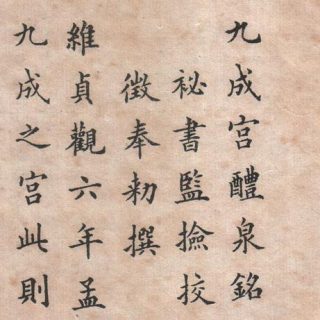 九成宫醴泉銘
祕書監撿挍
徵奉勑撰
維貞觀六年孟
九成之宫此則